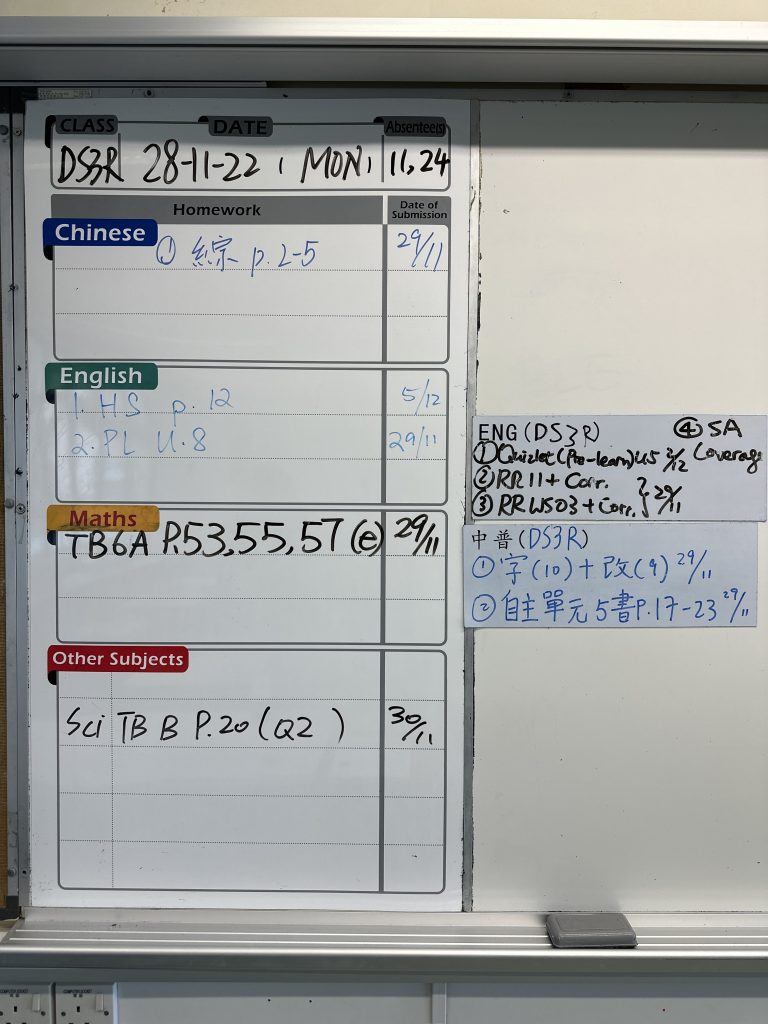 CLASS DATE Absentee(s)
DS3R 28-11-22 (MON) 11,24
Homework Date of Submission
Chinese
① 綜 p.2-5 29/11
English
1. HS p.12 5/12
2. PL U.8 29/11
Maths
TB6A P.53,55,57 (e) 29/11
Other Subjects
Sci TB B P.20 (Q2 ) 30/11
ENG (DS3R) ④ SA
① Quizlet (Pre-learn) U5 2/12 Coverage
② RR11 + Corr.
③ RRWS03 + Corr. } 29/11
中普 (DS3R)
① 字(10) + 改(9) 29/11
② 自主單元5書P.17-23 29/11
COMPUTER SOCKET COMPUTER SOCKET